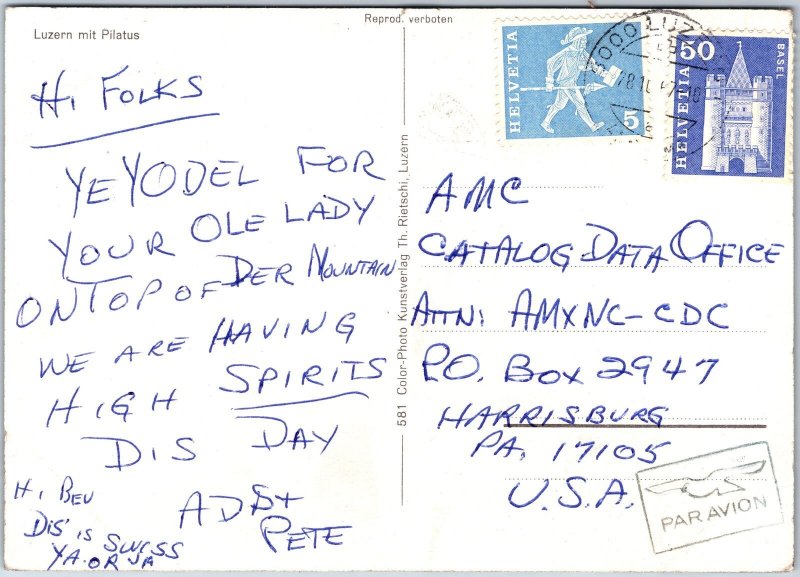 Luzern mit Pilatus
Reprod. verboten
HI FOLKS
YE YODEL FOR
YOUR OLE LADY
ON TOP OF DER MOUNTAIN
WE ARE HAVING
HIGH SPIRITS
DIS DAY
PETE
HI BEV
DIS' IS SWISS
YA OR JA
581 Color-Photo Kunstverlag Th. Rietschi, Luzern
HELVETIA
5
50
HELVETIA
BASEL
6000 LUZERN
AMC
CATALOG DATA OFFICE
ATTN: AMXNC-CDC
P.O. BOX 2947
HARRISBURG
PA. 17105
U.S.A.
PAR AVION